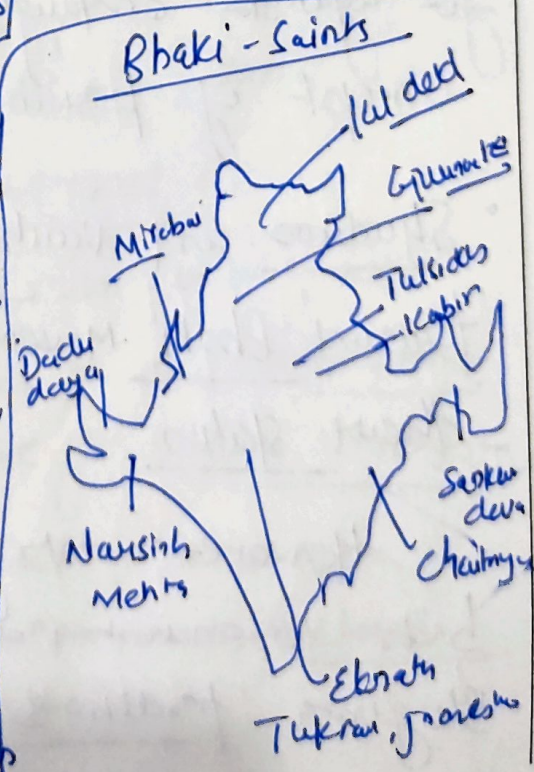 Bhaki - Saints
Lal ded
Gurunank
Mirabai
Tulsidas
Kabir
Dadu
dayal
Sankar
deva
Narsinh
Mehta
Chaitnya
Eknath
Tukram, Jnanesh